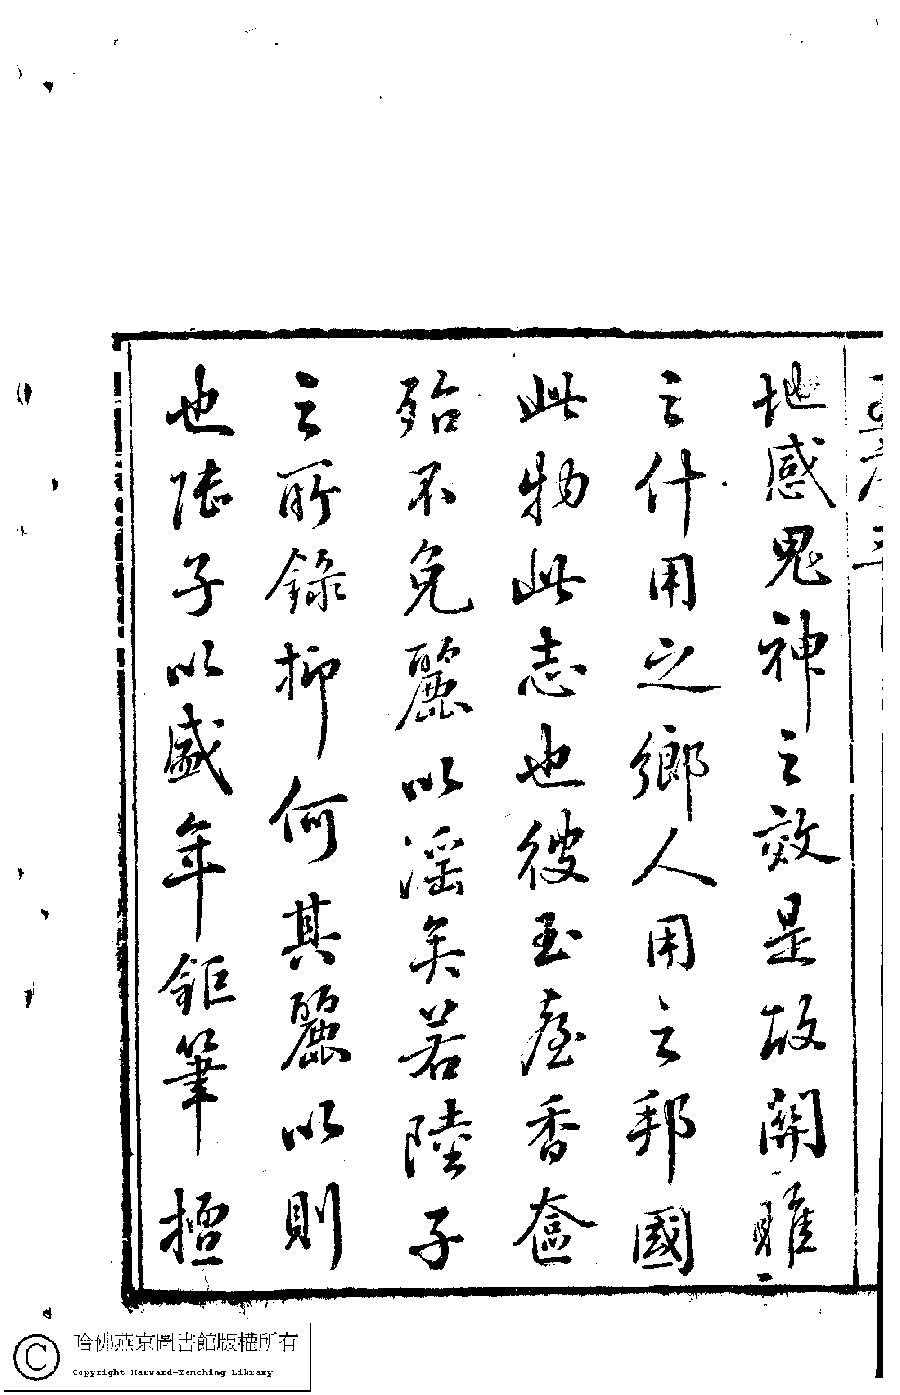 地感鬼神之效是故關雎
之什用之鄉人用之邦國
此物此志也彼玉臺香奩
殆不免麗以淫矣若陸子
之所錄抑何其麗以則
也陸子以盛年鉅筆擅
哈佛燕京圖書館版權所有
Copyright Harvard-Yenching Library